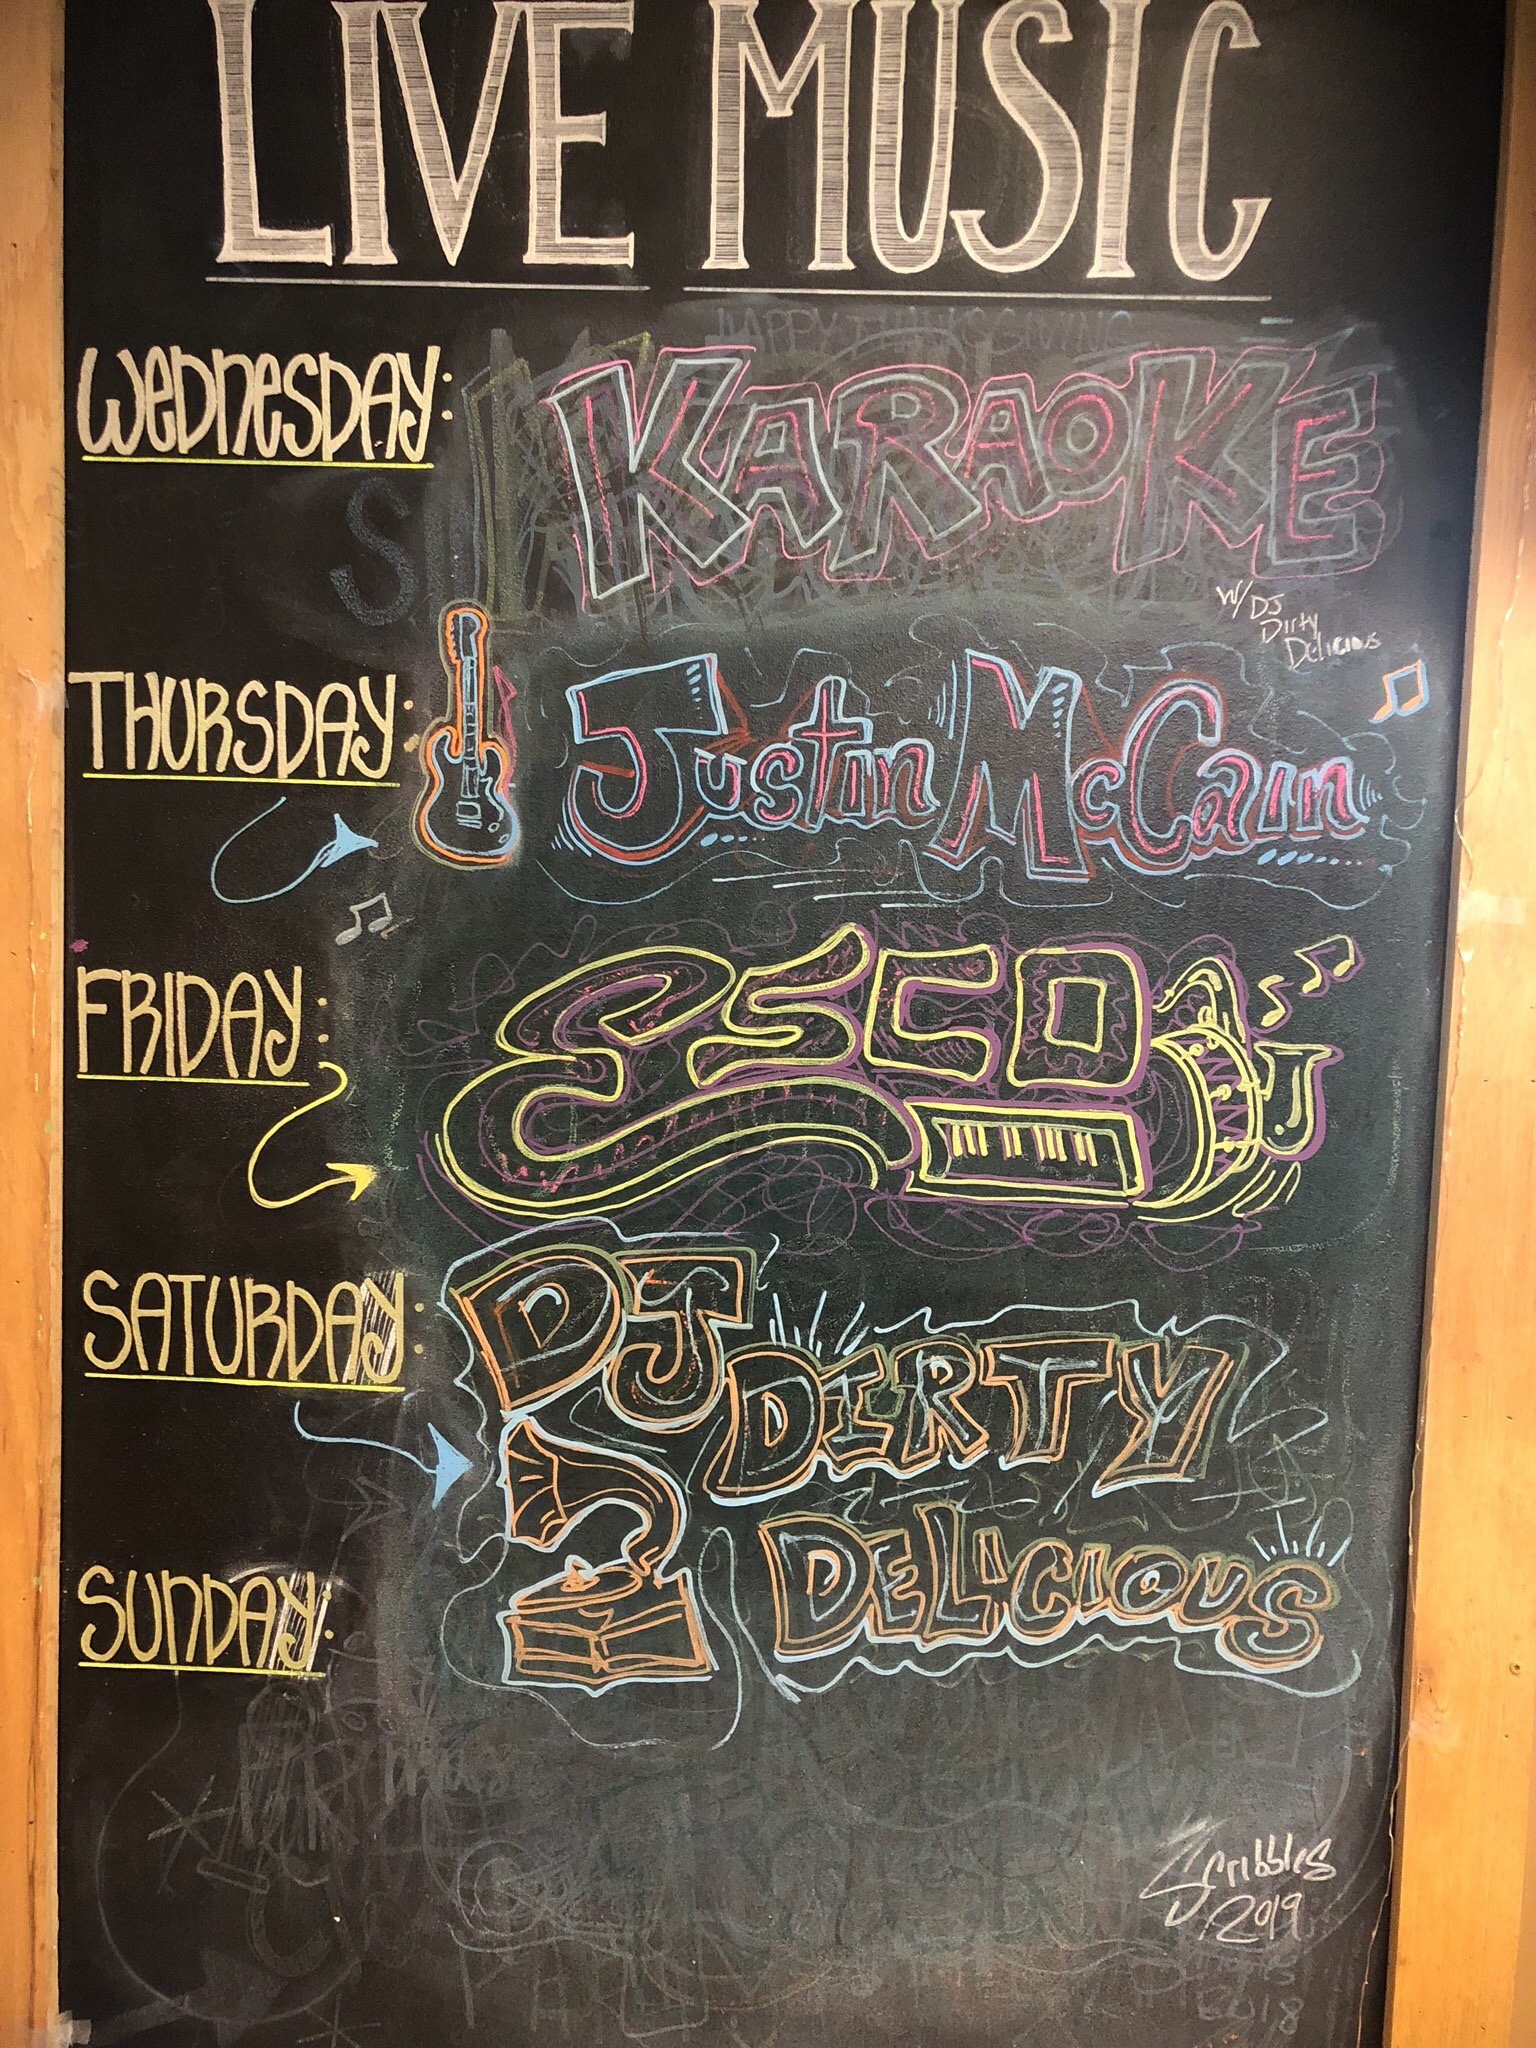 LIVE MUSIC
HAPPY THANKSGIVING
WEDNESDAY: KARAOKE
W/ DJ
Dirty
Delicious
THURSDAY: Justin McCain
FRIDAY: ESCO
SATURDAY: DJ DIRTY
DELICIOUS
SUNDAY:
Scribbles
2019
2018